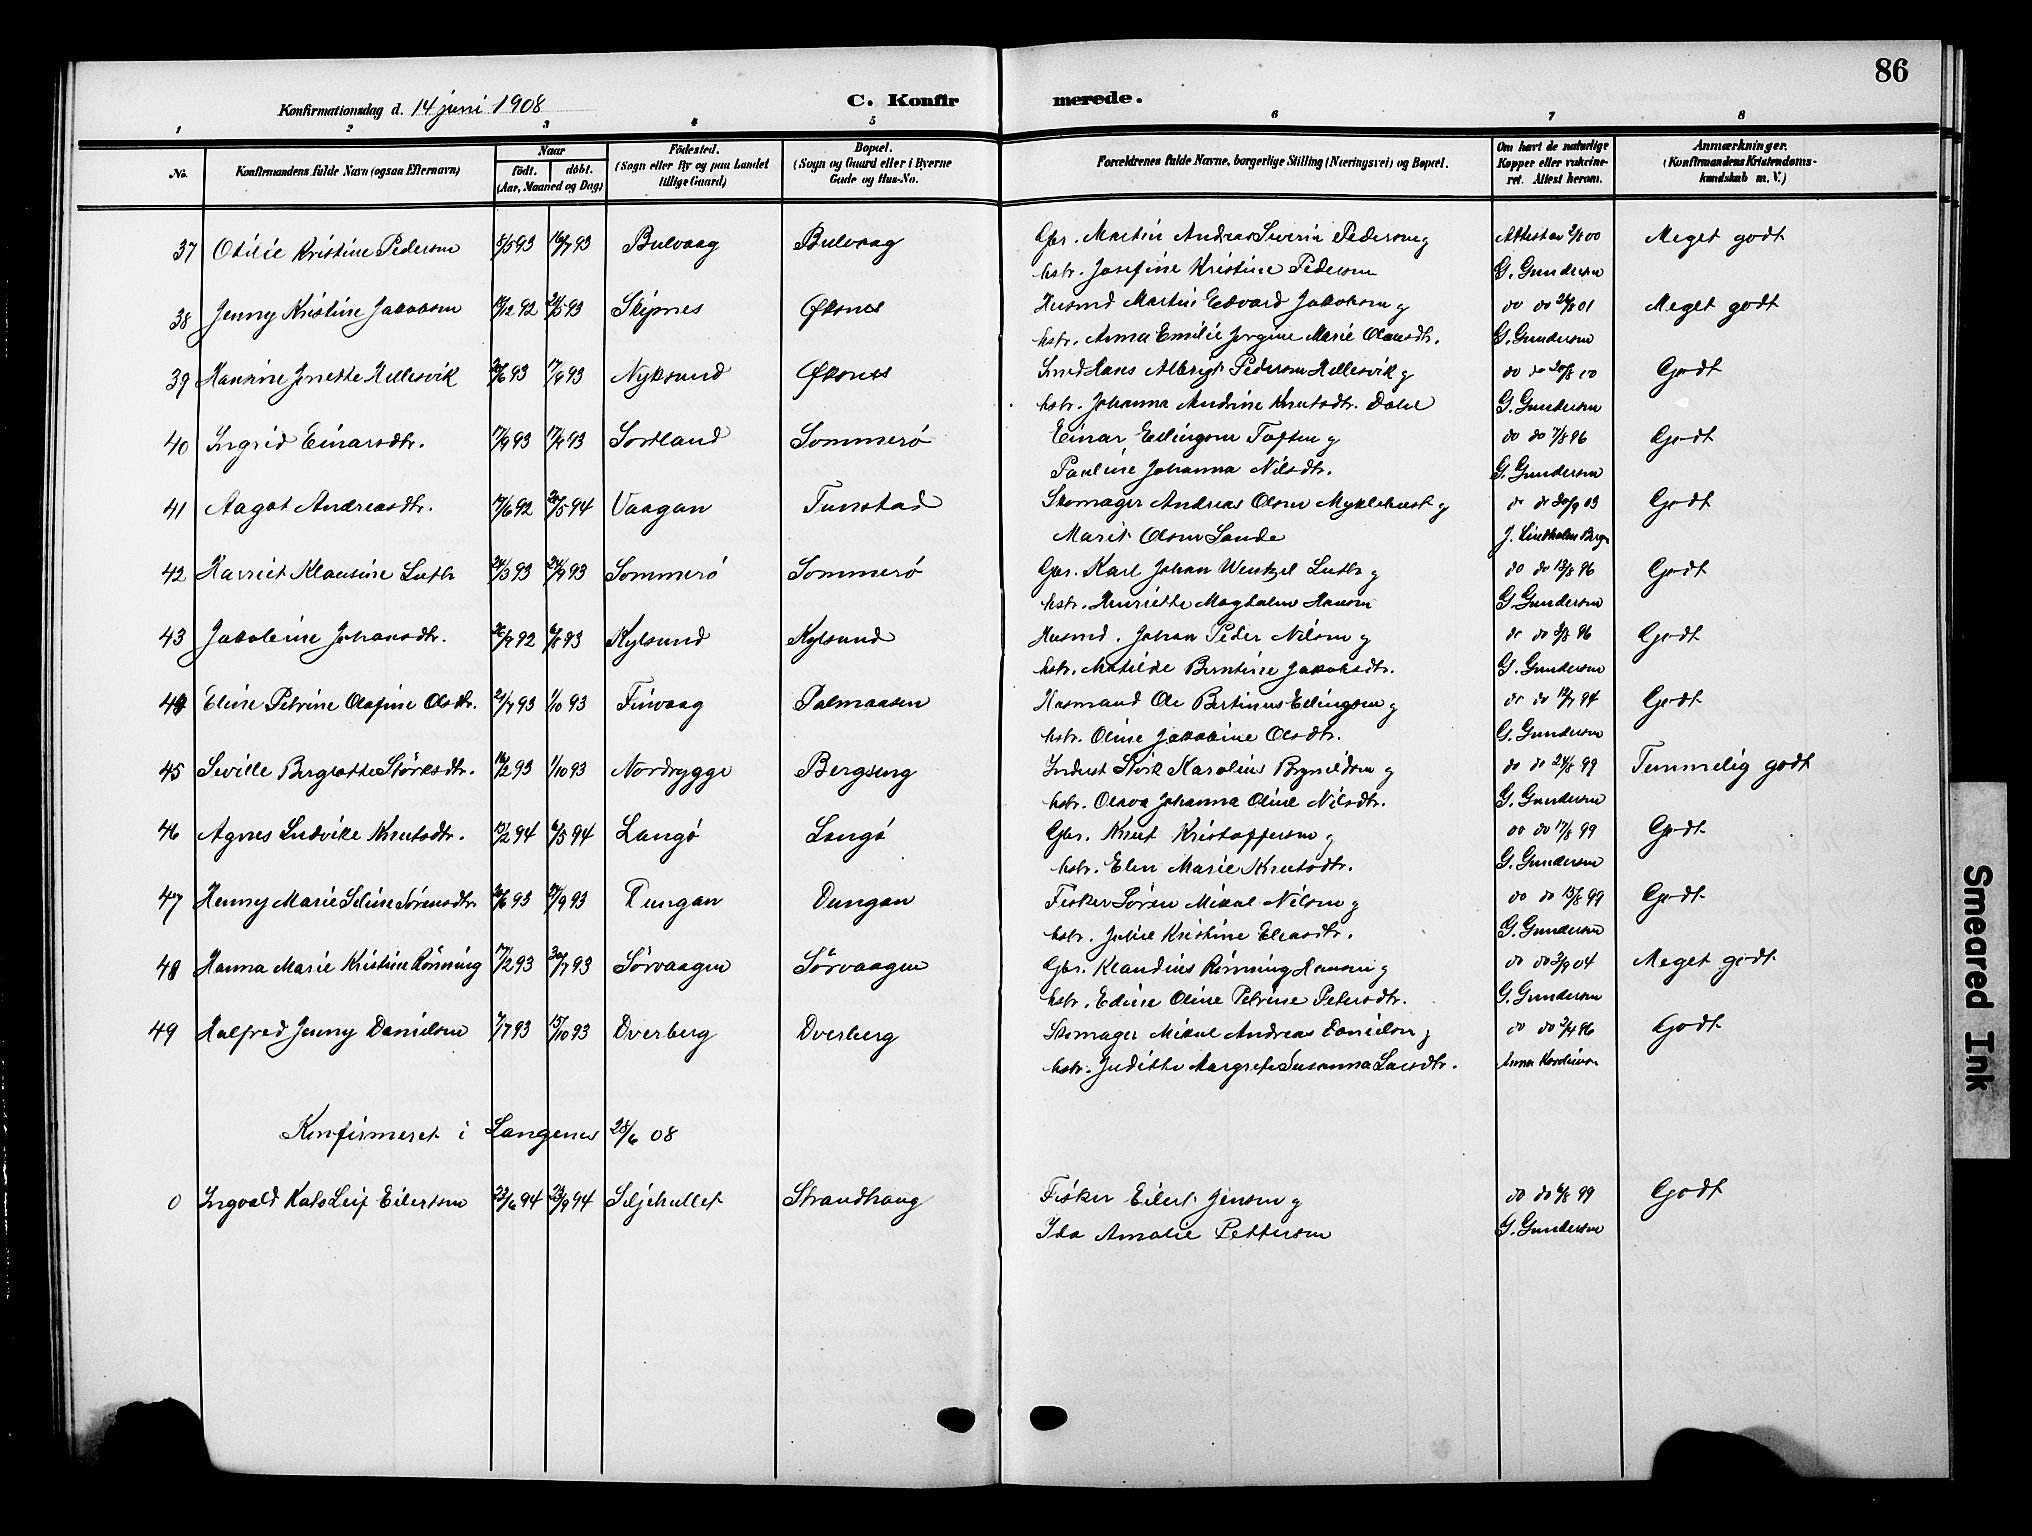 86
Konfirmationsdag d. 14 juni 1908 C. Konfirmerede.
1 2 3 4 5 6 7 8
No. Konfirmandens fulde Navn (ogsaa Efternavn) Naar født. døbt. (Aar, Maaned og Dag) Fødested. (Sogn eller By og paa Landet tillige Gaard) Bopæl. (Sogn og Gaard eller i Byerne Gade og Hus-No. Forældrenes fulde Navne, borgerlige Stilling (Næringsvei) og Bopæl. Om havt de naturlige Kopper eller vaksineret. Attest herom. Anmærkninger. (Konfirmandens Kristendomskundskab m. V.)
37 Otilie Kristine Pedersen 8/5 93 16/7 93 Bulvaag Bulvaag Gbr. Martin Andreas Severin Pedersen og Attest av 2/8 00 Meget godt
hstr. Josefine Kristine Pedersen G. Gundersen
38 Jenny Kristine Jakobsen 12/12 92 21/5 93 Skipnes Øksnes Husmd Martin Edvard Jakobsen og do do 24/8 01 Meget godt
hstr. Anna Emilie Jørgine Marie Olausdtr. G. Gundersen
39 Hansine Jenette Hellesvik 20/6 93 17/9 93 Nyksund Øksnes Smed Hans Albrigt Pedersen Hellesvik og do do 20/8 00 Godt
hstr. Johanna Andrine Knutsdtr. Dahl G. Gundersen
40 Ingrid Einarsdtr. 17/9 93 Sortland Sommerø Einar Ellingsen Toften og do do 7/8 96 Godt
Pauline Johanna Nilsdtr. G. Gundersen
41 Aagot Andreasdtr. 17/6 92 20/5 94 Vaagan Tunstad Skomager Andreas Olsen Myklebust og do do 30/9 03 Godt
Marit Olsen Sande J. Lindholm Berg
42 Harriet Klausine Lutbr 24/3 93 24/9 93 Sommerø Sommerø Gbr. Karl Johan Wentzel Lutbr og do do 13/8 96 Godt
hstr. Henriette Magdalene Hansen G. Gundersen
43 Jakobine Johansdtr. 6/8 93 Kylsund Kylsund Husmd. Johan Peder Nilsen og do do 3/8 96 Godt
hstr. Matilde Berntine Jakobsdtr. G. Gundersen
44 Eline Petrine Olafine Olsdtr. 21/7 93 1/10 93 Finvaag Palmaasen Husmand Ole Bertinus Ellingsen og do do 12/7 94 Godt
hstr. Oline Jakobine Olsdtr. G. Gundersen
45 Seville Bergiotte Størksdtr. 16/2 93 1/10 93 Nordrygge Bergseng Inderst Störk Karolius Brynildsen og do do 24/8 99 Temmelig godt
hstr. Olava Johanna Oline Nilsdtr. G. Gundersen
46 Agnes Ludvike Knutsdtr. 13/2 94 6/5 94 Langø Langø Gbr. Knut Kristoffersen og do do 17/8 99 Godt
hstr. Elen Marie Knutsdtr. G. Gundersen
47 Henny Marie Seline Sørensdtr. 20/6 93 24/9 93 Dungan Dungan Fisker Søren Mikal Nilsen og do do 15/8 99 Godt
hstr. Julie Kristine Eliasdtr. G. Gundersen
48 Hanna Marie Kristine Rønning 17/2 93 30/7 93 Sørvaagen Sørvaagen Gbr. Klaudius Rønning Hansen og do do 3/9 04 Meget godt
hstr. Edine Oline Petrine Petersdtr. G. Gundersen
49 Halfred Jenny Danielsen 7/7 93 15/10 93 Dverberg Dverberg Skomager Mikal Andreas Danielsen og do do 3/4 96 Godt
hstr. Juditte Margrete Susanna Larsdtr. Anna
Konfirmeret i Langenes 28/6 08
0 Ingvald Kato Leif Eilertsen 23/6 94 23/9 94 Siljehullet Strandhaug Fisker Eilert Jensen og do do 6/8 99 Godt
Ida Amalie Pettersen G. Gundersen
Smeared Ink